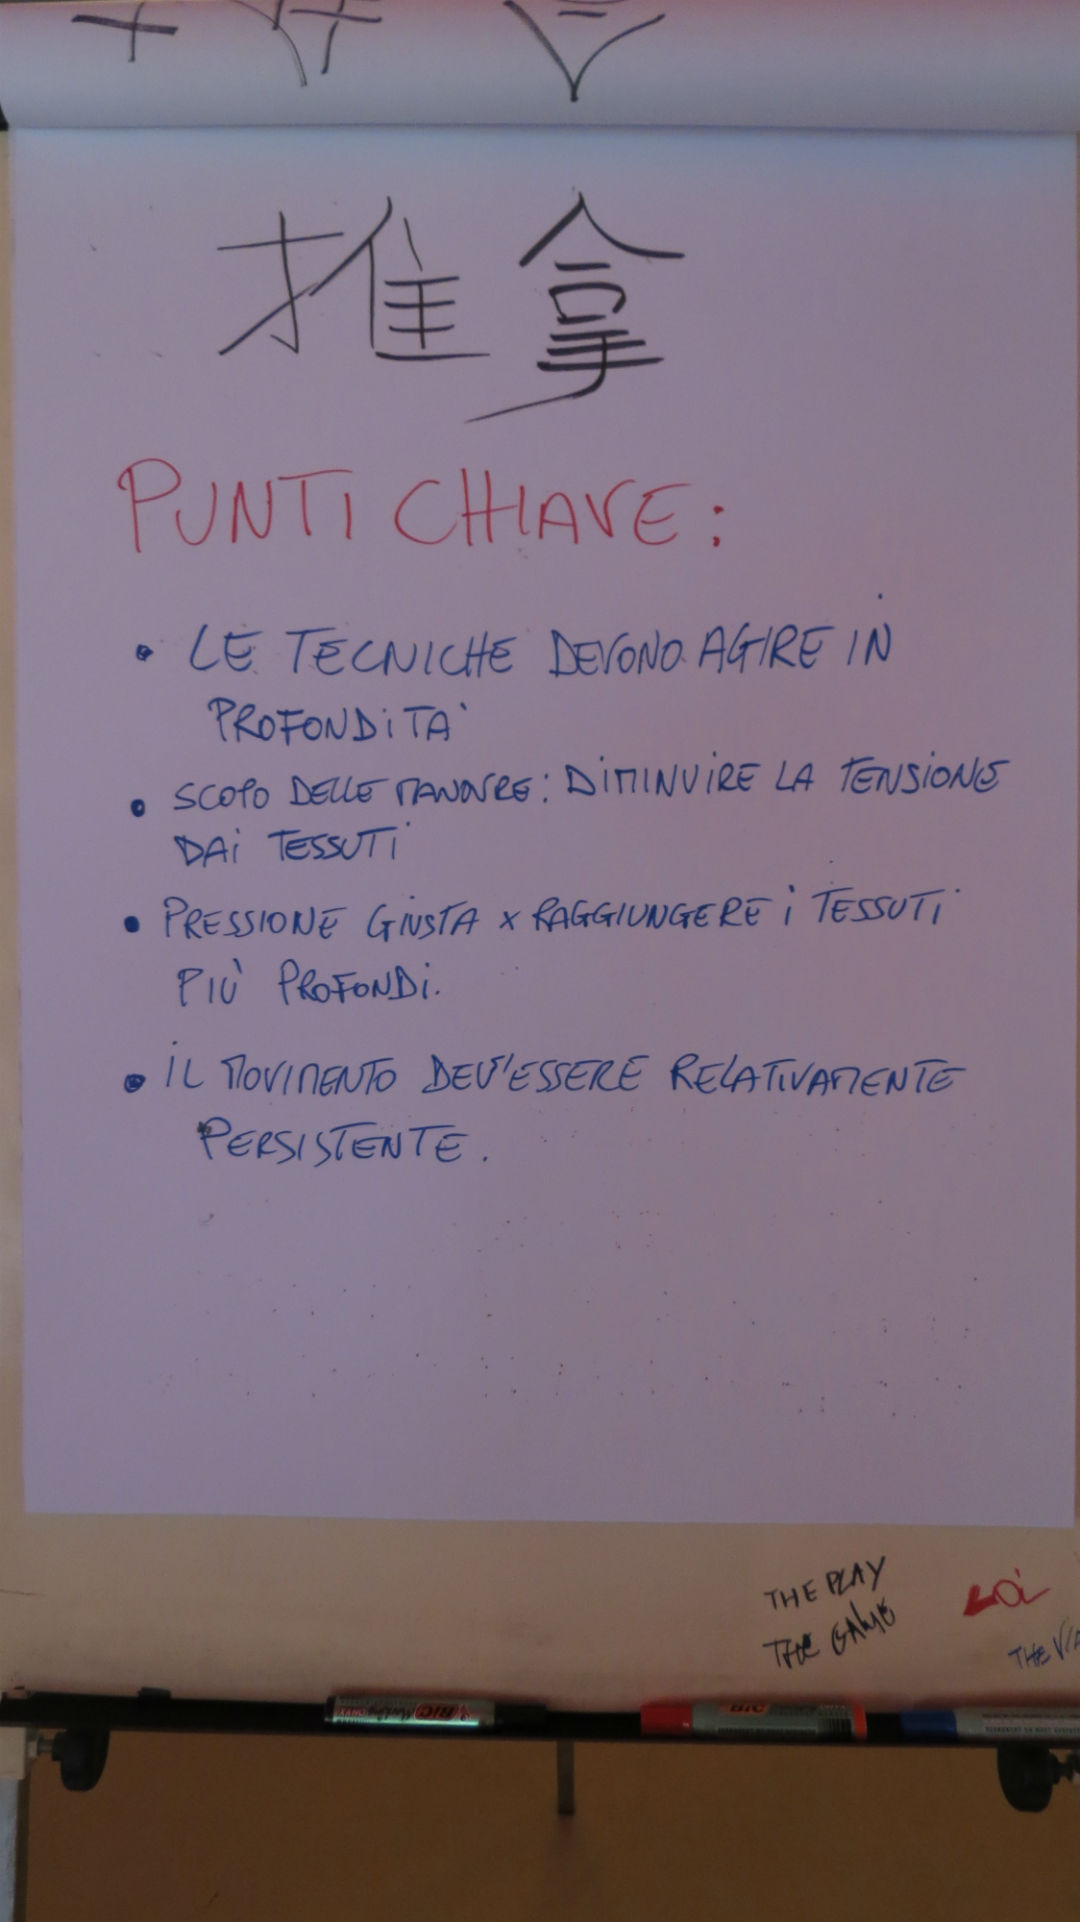 推拿
PUNTI CHIAVE:
• LE TECNICHE DEVONO AGIRE IN
PROFONDITA'
• SCOPO DELLE MANOVRE: DIMINUIRE LA TENSIONE
DAI TESSUTI
• PRESSIONE GIUSTA x RAGGIUNGERE I TESSUTI
PIÙ PROFONDI.
• IL MOVIMENTO DEV'ESSERE RELATIVAMENTE
PERSISTENTE.
THE PLAY
THE GAME
THE
BIC Marking
BIC